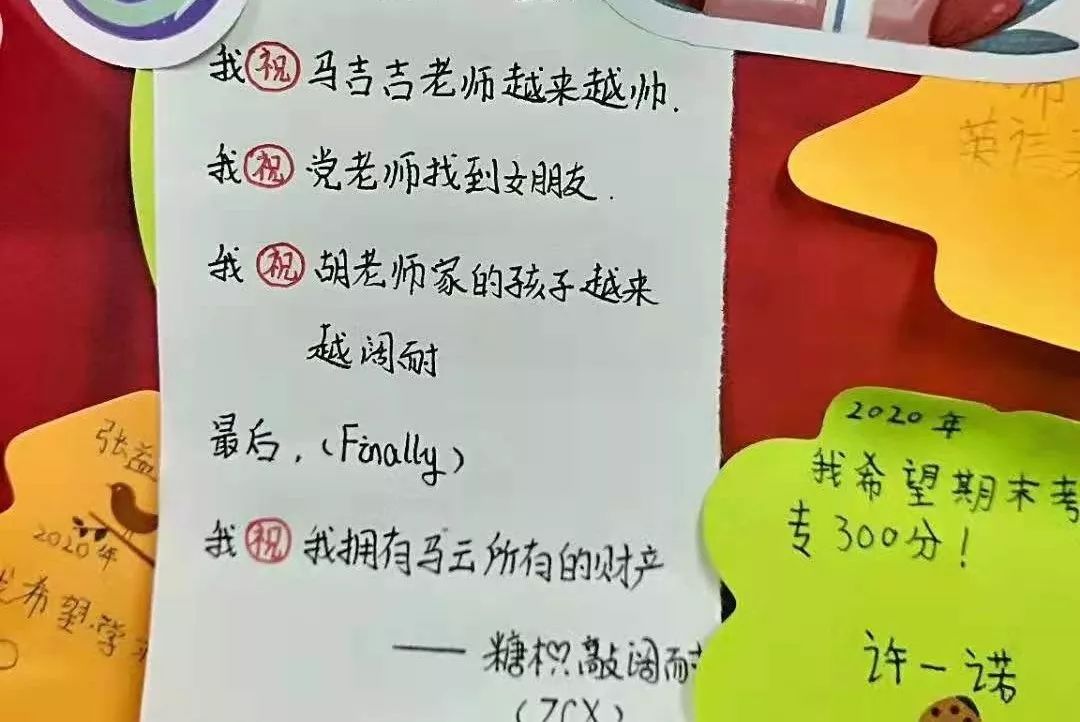 我祝马吉吉老师越来越帅.
我祝党老师找到女朋友.
我祝胡老师家的孩子越来
越阔耐
最后,(Finally)
我祝我拥有马云所有的财产
—— 糖枳敲阔耐
(ZCX)
英
张益
2020年
希望学习
2020年
我希望期末考
专300分!
许一诺